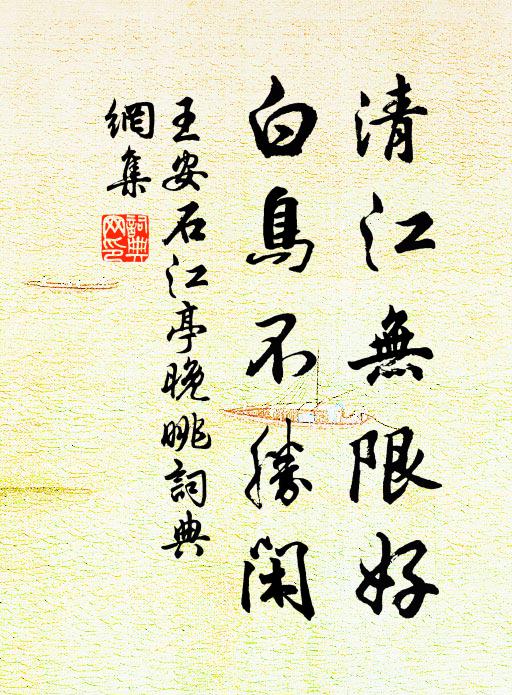 清江無限好
白鳥不勝閑
王安石江亭晚眺詞典
網集
詞典
網印